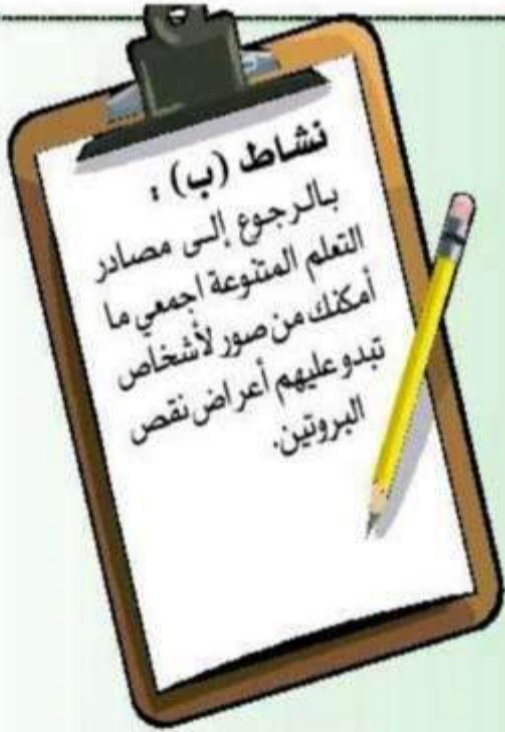 نشاط (ب) :
بالرجوع إلى مصادر
التعلم المتنوعة اجمعي ما
أمكنك من صور لأشخاص
تبدو عليهم أعراض نقص
البروتين.